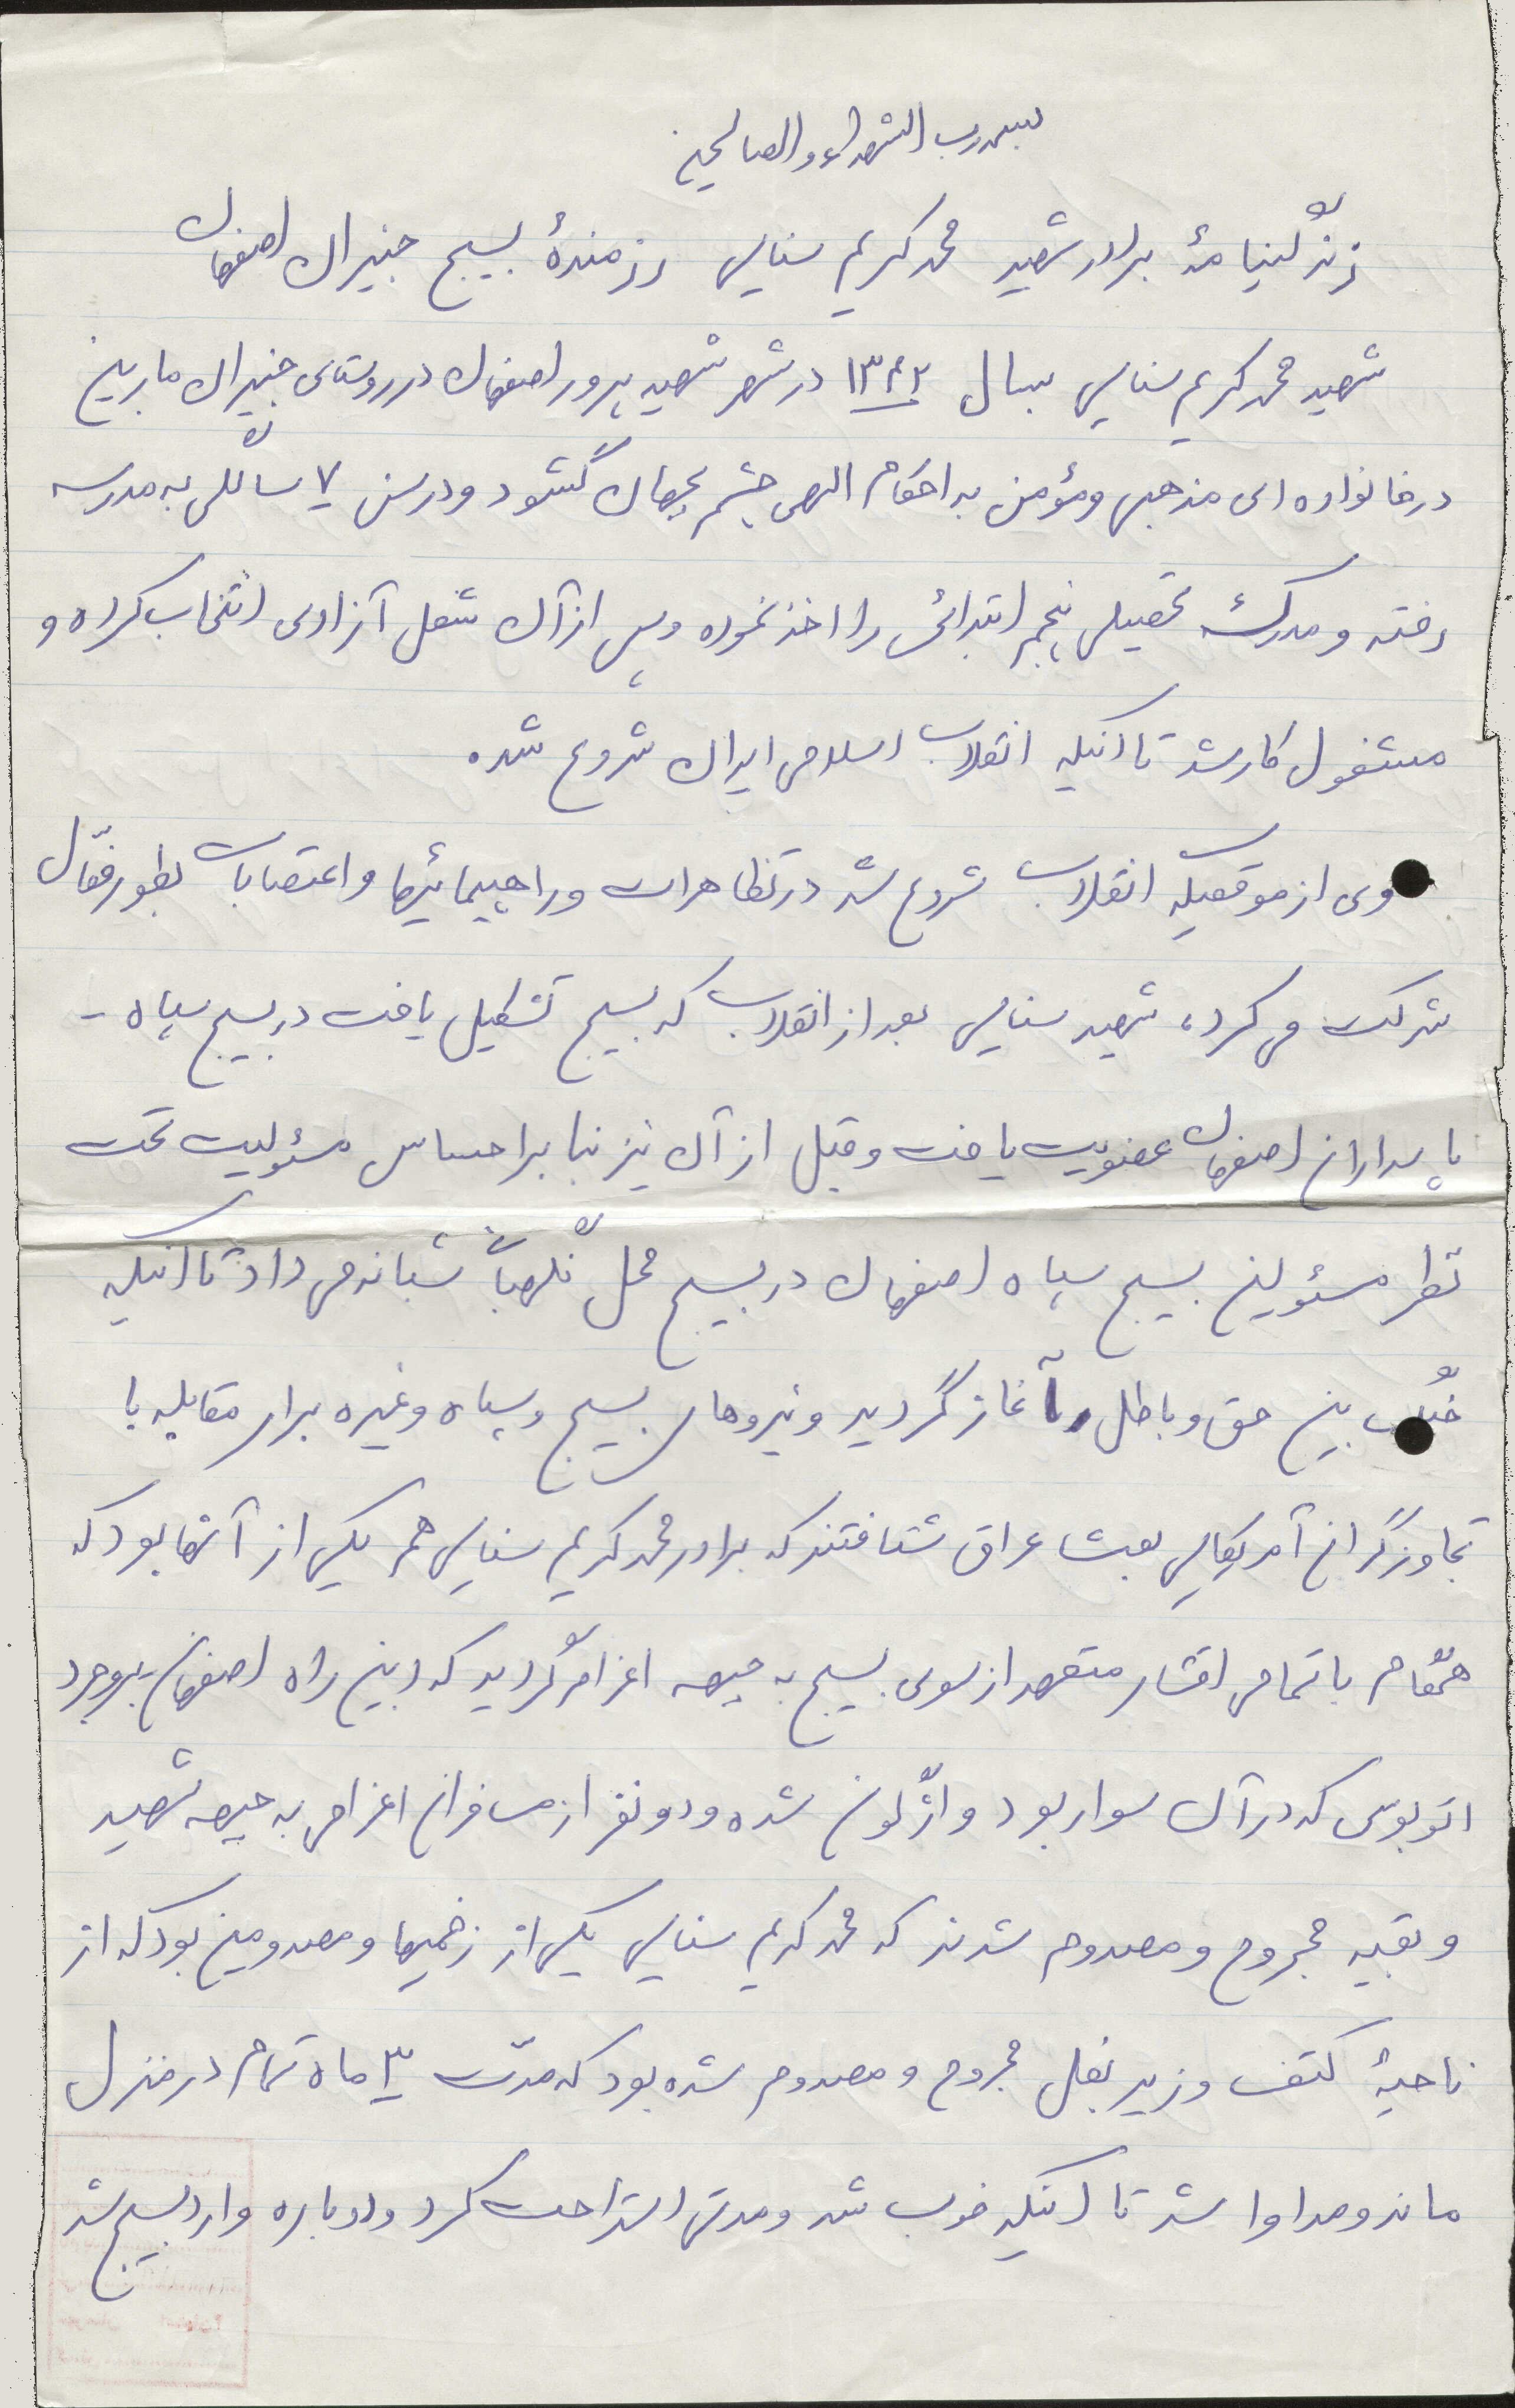 بسم رب الشهداء والصالحین
زندگینامهٔ برادر شهید محمد کریم سنایی رزمندهٔ بسیج جنیران اصفهان
شهید محمد کریم سنایی بسال ۱۳۴۲ در شهر شهید پرور اصفهان در روستای جنیران ماربین
در خانواده ای مذهبی و مؤمن به احکام الهی چشم بجهان گشود و در سن ۷ سالگی به مدرسه
رفته و مدرک تحصیلی پنجم ابتدائی را اخذ نموده و پس از آن شغل آزادی انتخاب کرده و
مشغول کار شد تا اینکه انقلاب اسلامی ایران شروع شده
وی از موقعیکه انقلاب شروع شد در تظاهرات و راهپیمائیها و اعتصابات بطور فعّال
شرکت می کرد، شهید سنایی بعد از انقلاب که بسیج تشکیل یافت در بسیج سپاه -
پاسداران اصفهان عضویت یافت و قبل از آن نیز بنا بر احساس مسئولیت تحت
نظر مسئولین بسیج سپاه اصفهان در بسیج محل نگهبانی شبانه می داد تا اینکه
جنگ بین حق و باطل آغاز گردید و نیروهای بسیج و سپاه و غیره برای مقابله با
تجاوزگران آمریکایی بعث عراق شتافتند که برادر محمد کریم سنایی هم یکی از آنها بود که
همگام با تمامی اقشار متعهد از سوی بسیج به جبهه اعزام گردید که در بین راه اصفهان - بروجرد
اتوبوسی که در آن سوار بود واژگون شده و دو نفر از مسافران اعزامی به جبهه شهید
و بقیه مجروح و مصدوم شدند که محمد کریم سنایی یکی از زخمیها و مصدومین بود که از
ناحیهٔ کتف و زیر بغل مجروح و مصدوم شده بود که مدّت ۳ ماه تمام در منزل
ماند و مداوا شد تا اینکه خوب شد و مدتی استراحت کرد و دوباره وارد بسیج شد